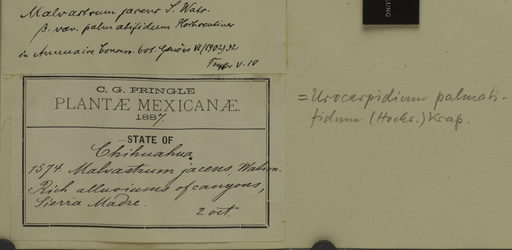 Malvastrum jacens S. Wats.
β. var. palmatifidum Hochreutiner
in Annuaire Conserv. bot. Genève VI (1902) 32
Typus v. IV
C. G. PRINGLE
PLANTÆ MEXICANÆ.
1887.
STATE OF
Chihuahua,
1574. Malvastrum jacens, Watson.
Rich alluviums of canyons,
Sierra Madre.
2 oct.
= Urocarpidium palmati-
fidum (Hochr.) Krap.
LUNG